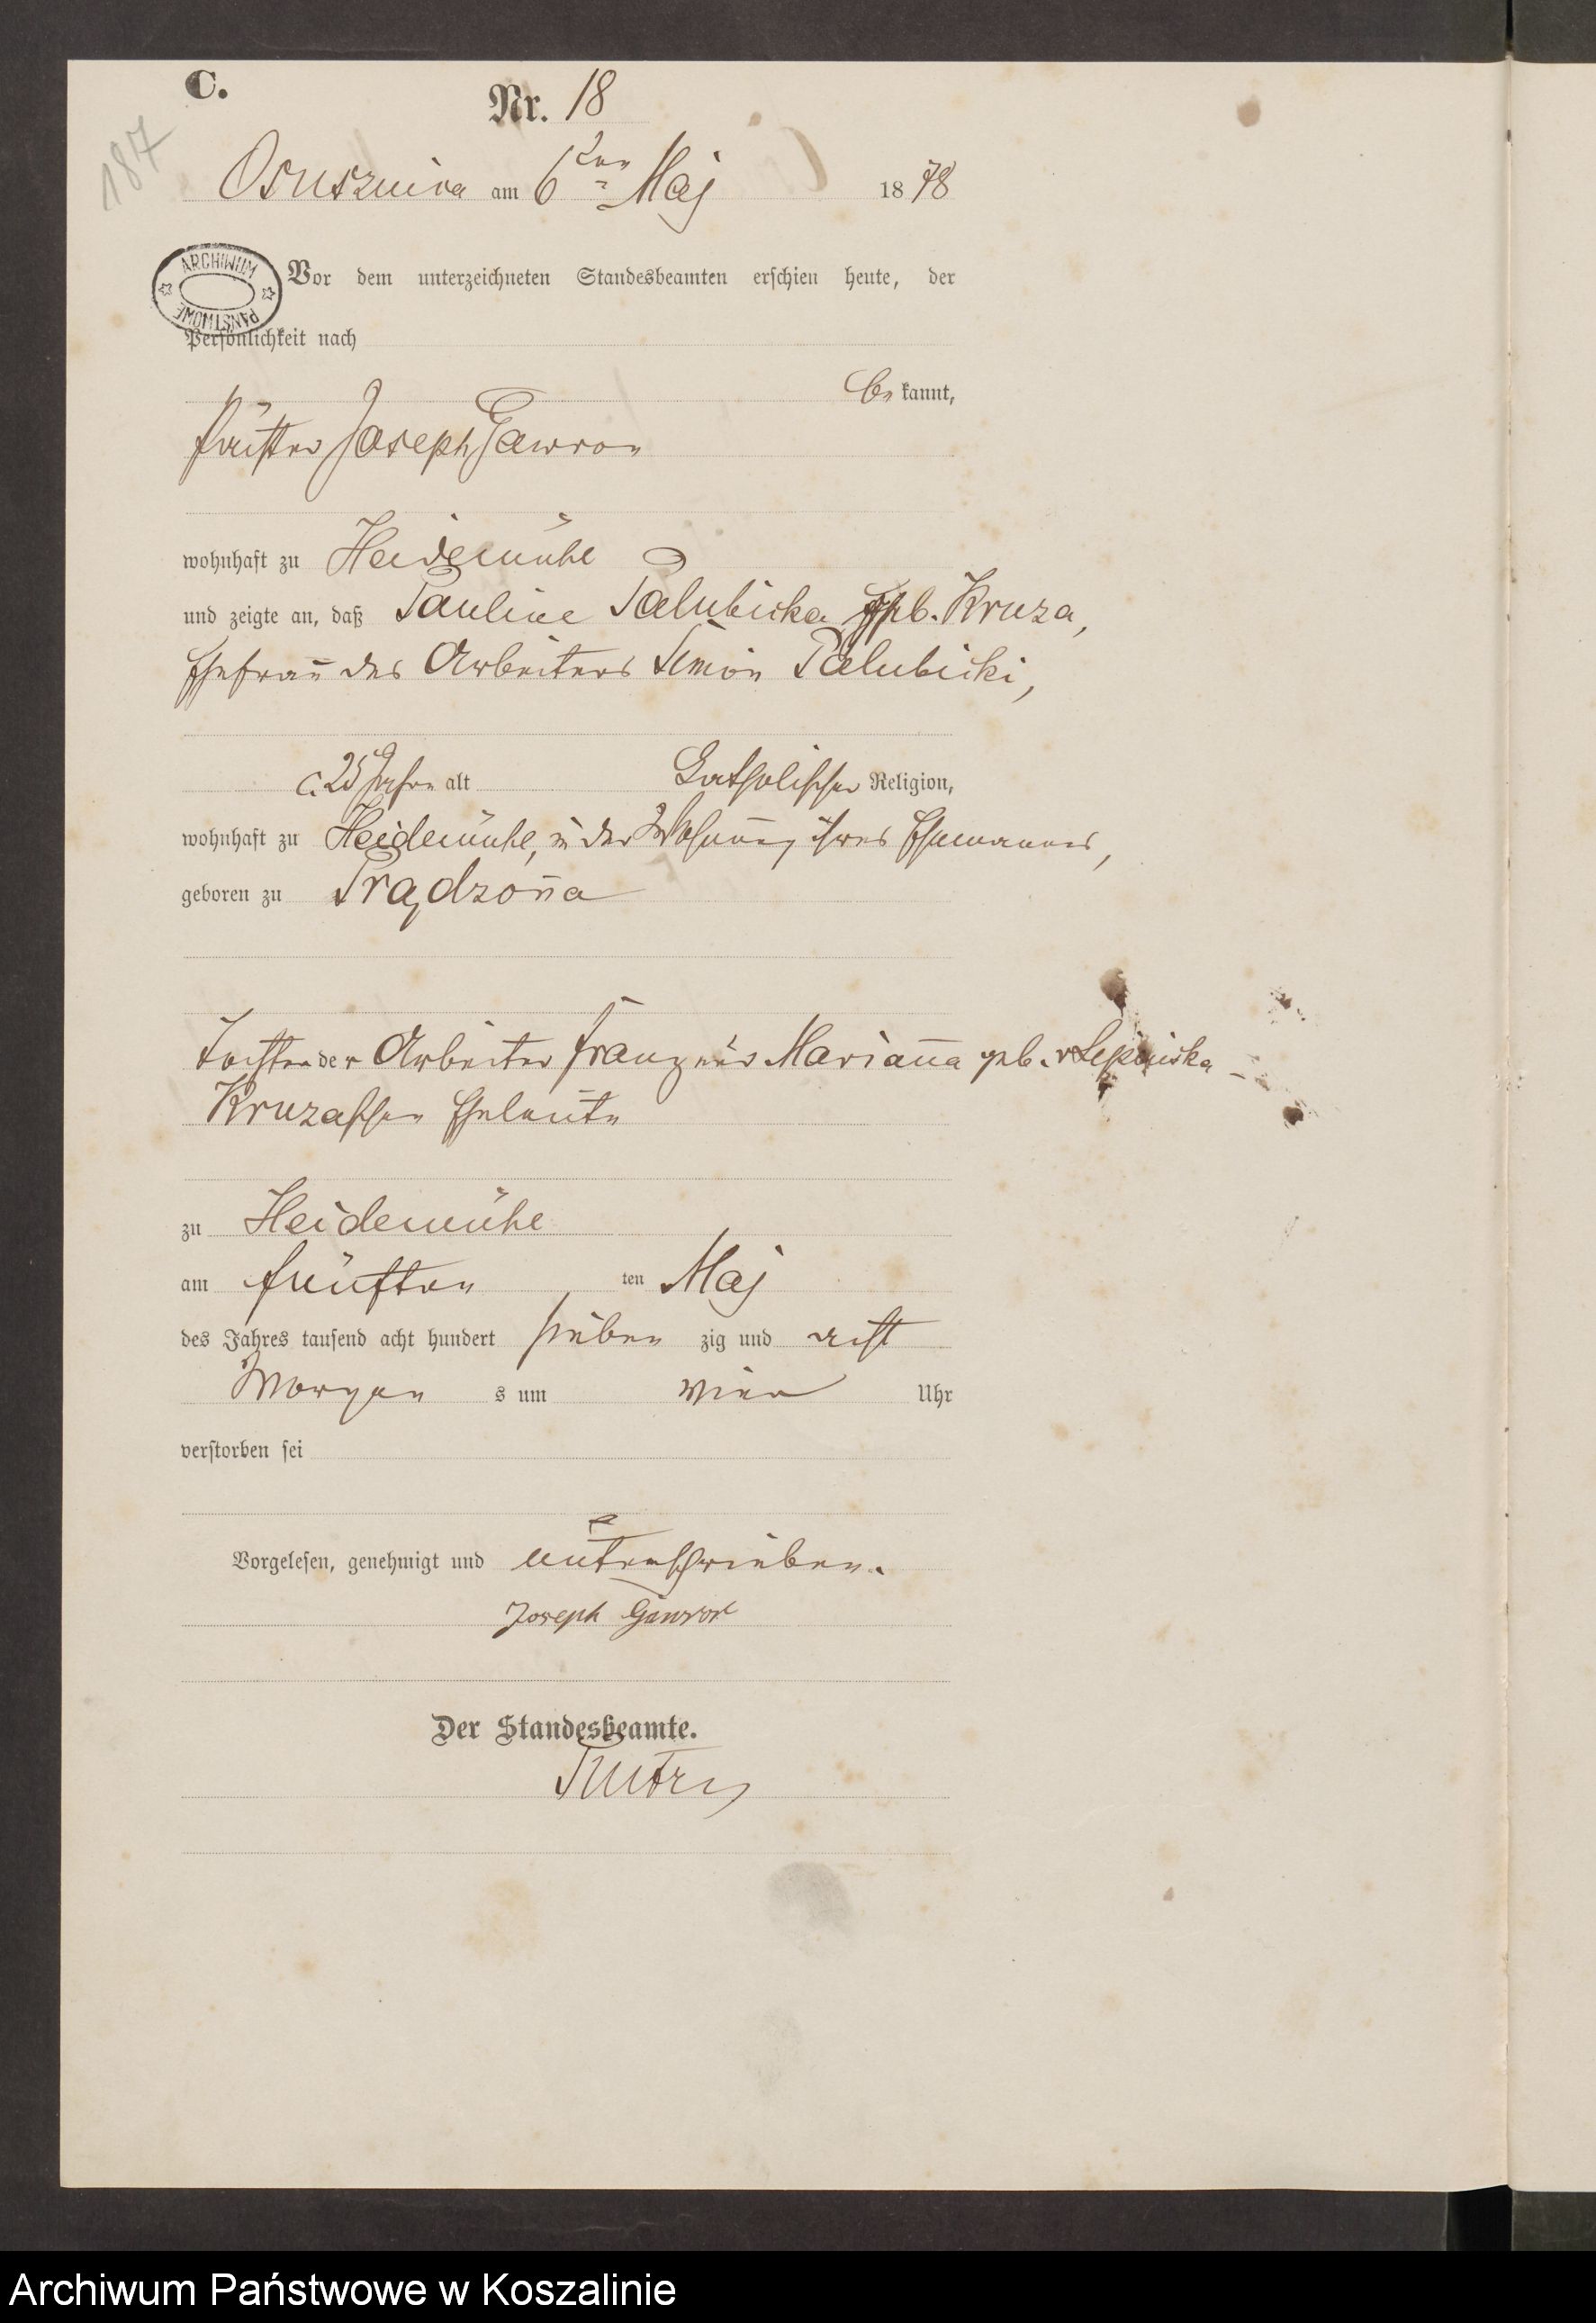 C.
Nr. 18
187
Osusznica am 6ten Maj 1878
ARCHIWUM PAŃSTWOWE
Vor dem unterzeichneten Standesbeamten erschien heute, der
Persönlichkeit nach
be kannt,
Joseph Gawron
wohnhaft zu Heidemühl
und zeigte an, daß Pauline Palubicka geb. Kruza,
Ehefrau des Arbeiters Simon Palubicki,
c. 25 Jahre alt Katholischer Religion,
wohnhaft zu Heidemühl, in der Wohnung ihres Ehemannes,
geboren zu Prądzona
Tochter der Arbeiter Franz und Marianna geb. v
Kruzaschen Eheleute
zu Heidemühl
am fünften ten Maj
des Jahres tausend acht hundert sieben zig und acht
Morgen s um vier Uhr
verstorben sei
Vorgelesen, genehmigt und unterschrieben.
Joseph Gawron
Der Standesbeamte.
Archiwum Państwowe w Koszalinie